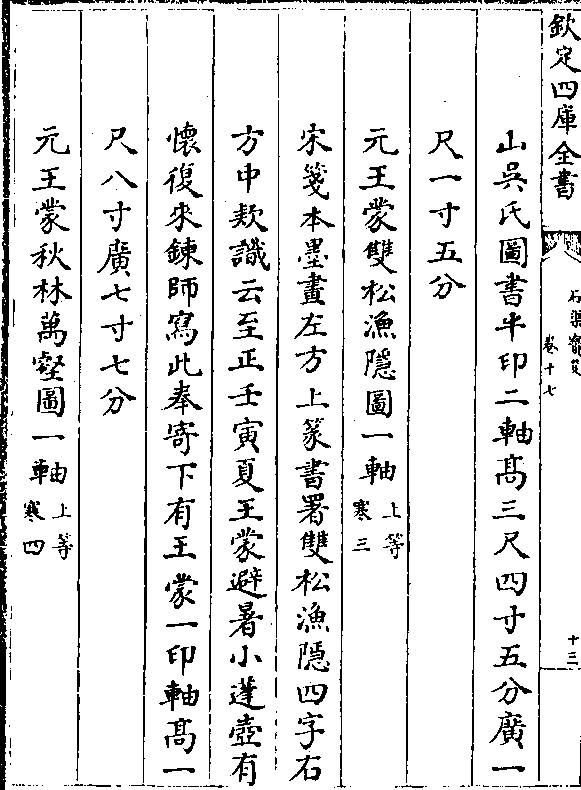 欽定四庫全書
石渠寶笈
卷十七
十三
山吳氏圖書半印二軸髙三尺四寸五分廣一
尺一寸五分
元王蒙雙松漁隱圖一軸上等
寒三
宋箋本墨畫左方上篆書署雙松漁隱四字右
方中款識云至正壬寅夏王蒙避暑小蓬壺有
懷復來鍊師寫此奉寄下有王蒙一印軸髙一
尺八寸廣七寸七分
元王蒙秋林萬壑圖一軸上等
寒四